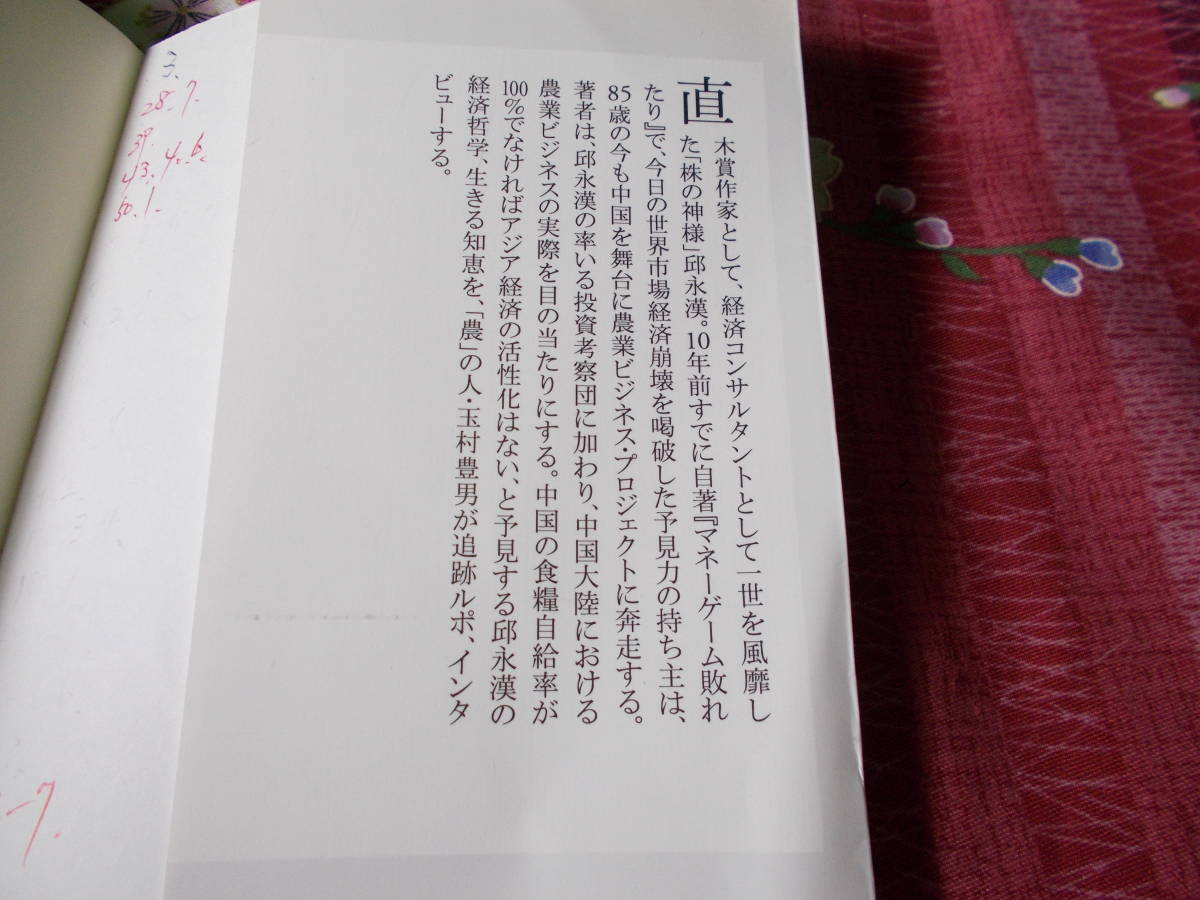 直木賞作家として、経済コンサルタントとして一世を風靡し
た「株の神様」邱永漢。10年前すでに自著『マネーゲーム敗れ
たり』で、今日の世界市場経済崩壊を喝破した予見力の持ち主は、
85歳の今も中国を舞台に農業ビジネス・プロジェクトに奔走する。
著者は、邱永漢の率いる投資考察団に加わり、中国大陸における
農業ビジネスの実際を目の当たりにする。中国の食糧自給率が
100%でなければアジア経済の活性化はない、と予見する邱永漢の
経済哲学、生きる知恵を、「農」の人・玉村豊男が追跡ルポ、インタ
ビューする。
3.
28-7.
39.
43. 4. 6.
50. 1.
-7.